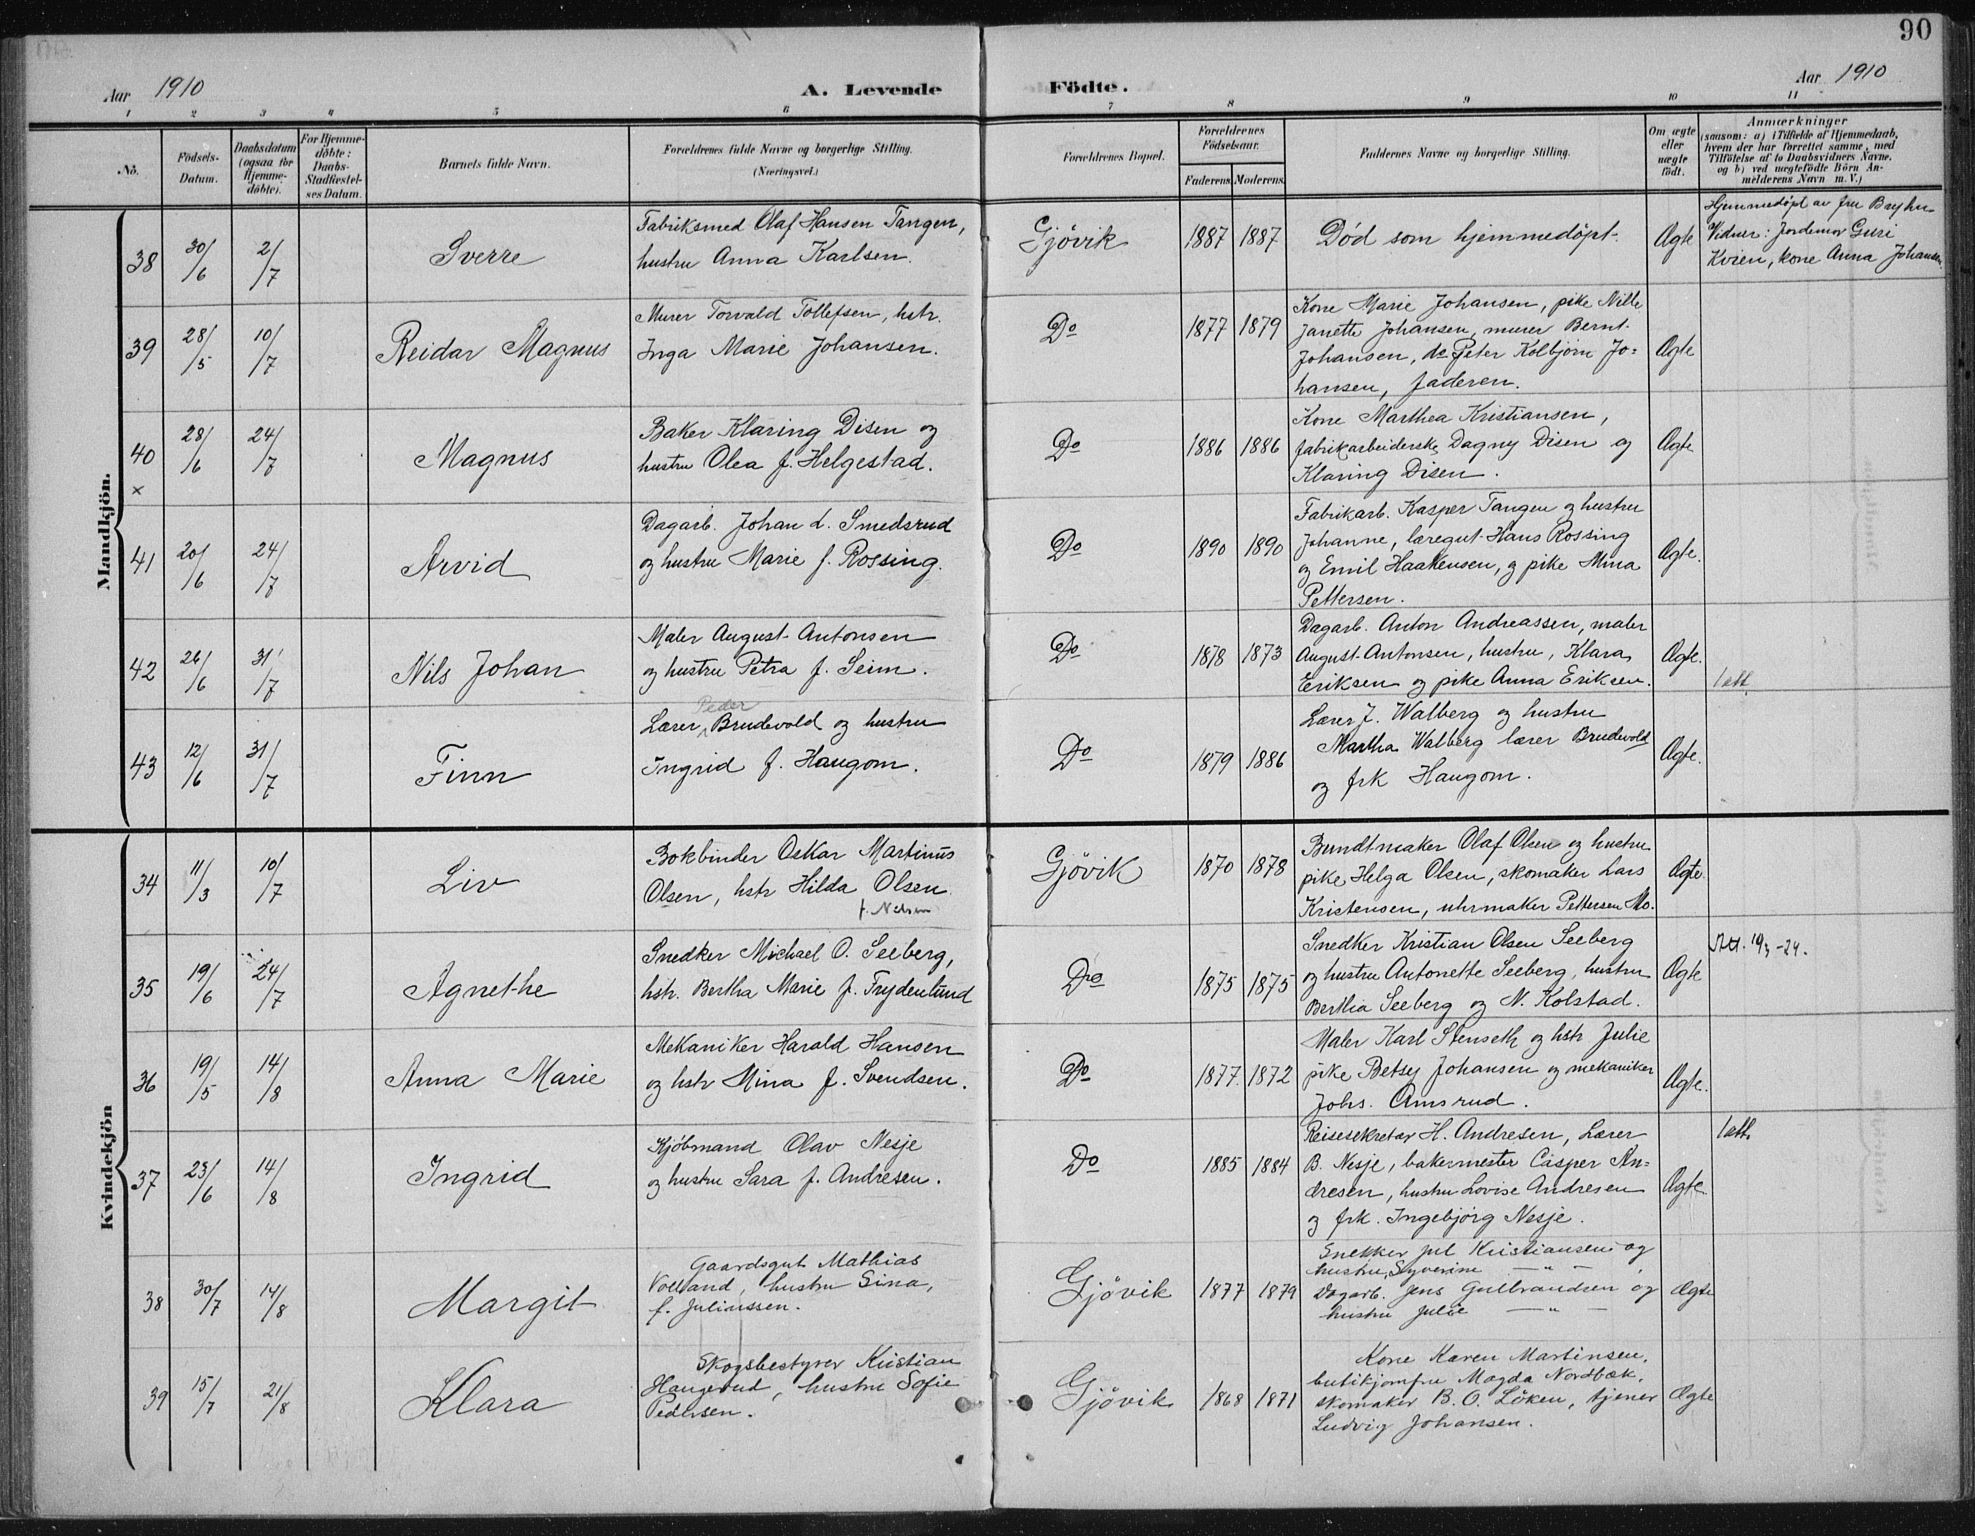 90
Aar 1910
A. Levende
Födte.
Aar 1910
1 2 3 4 5 6 7 8 9 10 11
No.
Födsels-Datum.
Daabsdatum (ogsaa for Hjemmedöbte).
For Hjemmedöbte: Daabs-Stadfæstelses Datum.
Barnets fulde Navn.
Forældrenes fulde Navne og borgerlige Stilling. (Næringsvei.)
Forældrenes Bopæl.
Forældrenes Födselsaar.
Faderens. Moderens.
Faddernes Navne og borgerlige Stilling.
Om ægte eller uægte födt.
Anmærkninger
(saasom: a) i Tilfælde af Hjemmedaab,
hvem der har forrettet samme, med
Tilföielse af to Daabsvidners Navne,
og b) ved uægtefödte Börn Anmelderens Navn m. V.)
Mandkjön.
38 30/6 2/7 Sverre
Fabriksmed Olaf Hansen Tangen,
hustru Anna Karlsen.
Gjövik 1887 1887
Död som hjemmedöpt.
Ægte
Hjemmedöpt av fru Bryhn
Vidner: Jordemor Guri
Kvien, kone Anna Johansen
39 28/5 10/7 Reidar Magnus
Murer Torvald Tollefsen, hstr.
Inga Marie Johansen.
Do 1877 1879
Kone Marie Johansen, pike Nille
Janette Johansen, murer Bernt
Johansen, do Peter Kolbjörn Jo=
hansen, faderen.
Ægte
40 × 28/6 24/7 Magnus
Baker Klaring Disen og
hustru Olea f. Helgestad.
Do 1886 1886
Kone Marthea Kristiansen,
fabrikarbeiderske Dagny Disen og
Klaring Disen.
Ægte
41 20/6 24/7 Arvid
Dagarb. Johan L. Smedsrud
og hustru Marie f. Rossing.
Do 1890 1890
Fabrikarb. Kasper Tangen og hustru
Johanne, læregut Hans Rossing
og Emil Haakensen, og pike Mina
Pettersen.
Ægte.
42 26/6 31/7 Nils Johan
Maler August Antonsen
og hustru Petra f. Seim.
Do 1878 1873
Dagarb. Anton Andreassen, maler
August Antonsen, hustru, Klara
Eriksen og pike Anna Eriksen.
Ægte.
1 att.
43 12/6 31/7 Finn
Peder
Lærer Brudevold og hustru
Ingrid f. Haugom.
Do 1879 1886
Lærer J. Walberg og hustru
Martha Walberg lærer Brudevold
og frk Haugom.
Ægte.
Kvindekjön
34 11/3 10/7 Liv
Bokbinder Oskar Martinus
Olsen, hstr Hilda Olsen
f. Nilsen
Gjövik 1870 1878
Bundtmaker Olaf Olsen og hustru
pike Helga Olsen, skomaker Lars
Kristensen, uhrmaker Pettersen Mo.
Ægte.
35 19/6 24/7 Agnethe
Snedker Michael O. Seeberg,
hstr. Bertha Marie f. Frydenlund
Do 1875 1875
Snedker Kristian Olsen Seeberg
og hustru Antonette Seeberg, hustru
Bertha Seeberg og N. Kolstad.
Ægte
Att. 19/3-24.
36 19/5 14/8 Anna Marie
Mekaniker Harald Hansen
og hstr Mina f. Svendsen.
Do 1877 1872
Maler Karl Stenseth og hstr Julie
pike Betsy Johansen og mekaniker
Johs. Amsrud.
Ægte.
37 23/6 14/8 Ingrid
Kjöbmand Olav Nesje
og hustru Sara f. Andresen.
Do 1885 1884
Reisesekretær H. Andresen, Lærer
B. Nesje, bakermester Casper An=
dresen, hustru Lovise Andresen
og frk. Ingebjörg Nesje.
Ægte.
1 att.
38 30/7 14/8 Margit
Gaardsgut Mathias
Volland, hustru Sina,
f. Julianssen.
Gjövik 1877 1879
Snekker Jul Kristiansen og
hustru Syverine — " —,
Dagarb. Jens Gulbrandsen og
hustru Julie — " —
Ægte
39 15/7 21/8 Klara
Skogsbestyrer Kristian
Haugerud, hustru Sofie
Pedersen.
Gjövik 1868 1871
Kone Karen Martinsen,
butikjomfru Magda Nordbæk,
skomaker B. O. Löken, tjener
Ludvig Johansen.
Ægte